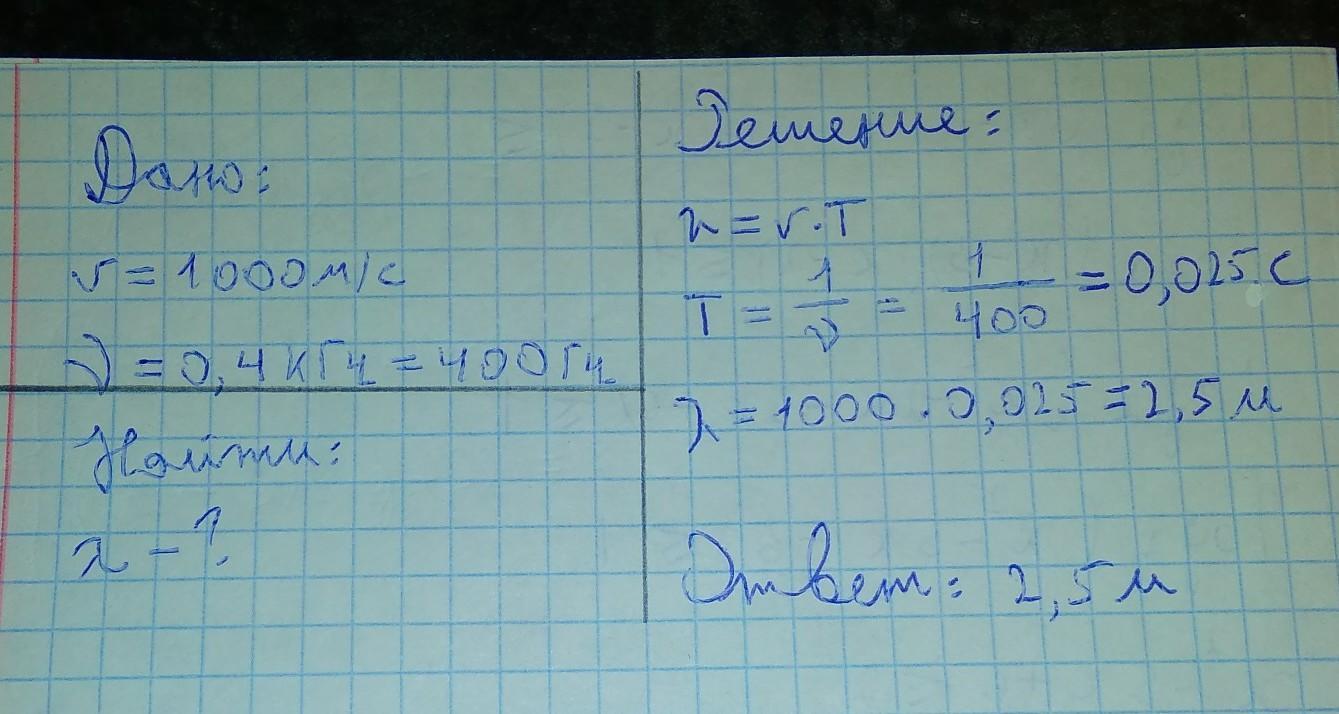 Дано:
v = 1000 м/с
ν = 0,4 кГц = 400 Гц
Найти:
λ - ?
Решение:
λ = v · T
T = 1/ν = 1/400 = 0,025 с
λ = 1000 · 0,025 = 2,5 м
Ответ: 2,5 м